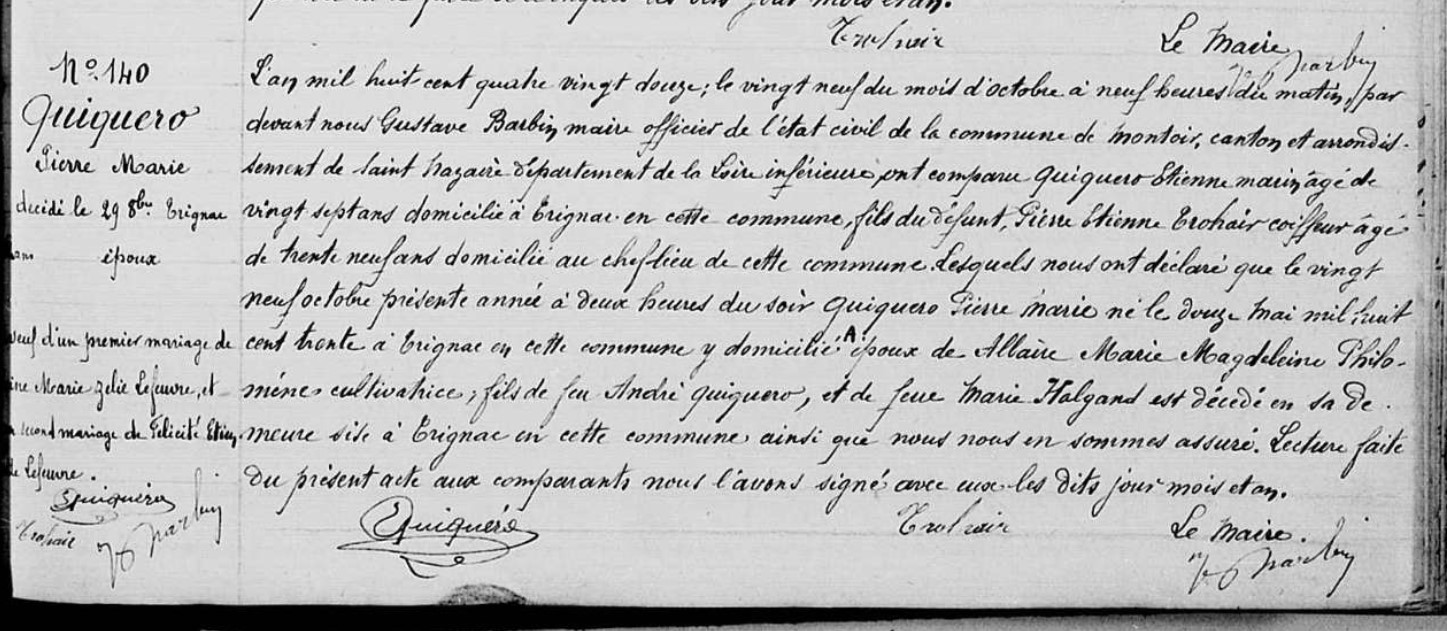 jour mois et an.
Trohair Le Maire
Barbin
N°. 140
Quiquero
Pierre Marie
décédé le 29 8bre Erignac
ans époux
veuf d'un premier mariage de
ine Marie Zelie Lefeuvre, et
second mariage de Félicité Etien
Lefeuvre.
Quiquéro
Trohair Barbin
L'an mil huit cent quatre vingt douze; le vingt neuf du mois d'octobre à neuf heures du matin, par
devant nous Gustave Barbin maire officier de l'état civil de la commune de Montoir, canton et arrondis-
sement de Saint Nazaire département de la Loire inférieure, ont comparu Quiquero Etienne marin âgé de
vingt sept ans domicilié à Erignac en cette commune, fils du défunt, Pierre Etienne Trohair coiffeur âgé
de trente neuf ans domicilié au chef lieu de cette commune. Lesquels nous ont déclaré que le vingt
neuf octobre présente année à deux heures du soir Quiquero Pierre Marie né le douze mai mil huit
cent trente à Erignac en cette commune y domicilié A époux de Allaire Marie Magdeleine Philo-
mène cultivatrice; fils de feu André Quiquero, et de feue Marie Halgand est décédé en sa de-
meure sise à Erignac en cette commune ainsi que nous nous en sommes assuré. Lecture faite
du présent acte aux comparants nous l'avons signé avec eux les dits jour mois et an.
Quiquéro Trohair Le Maire.
Barbin